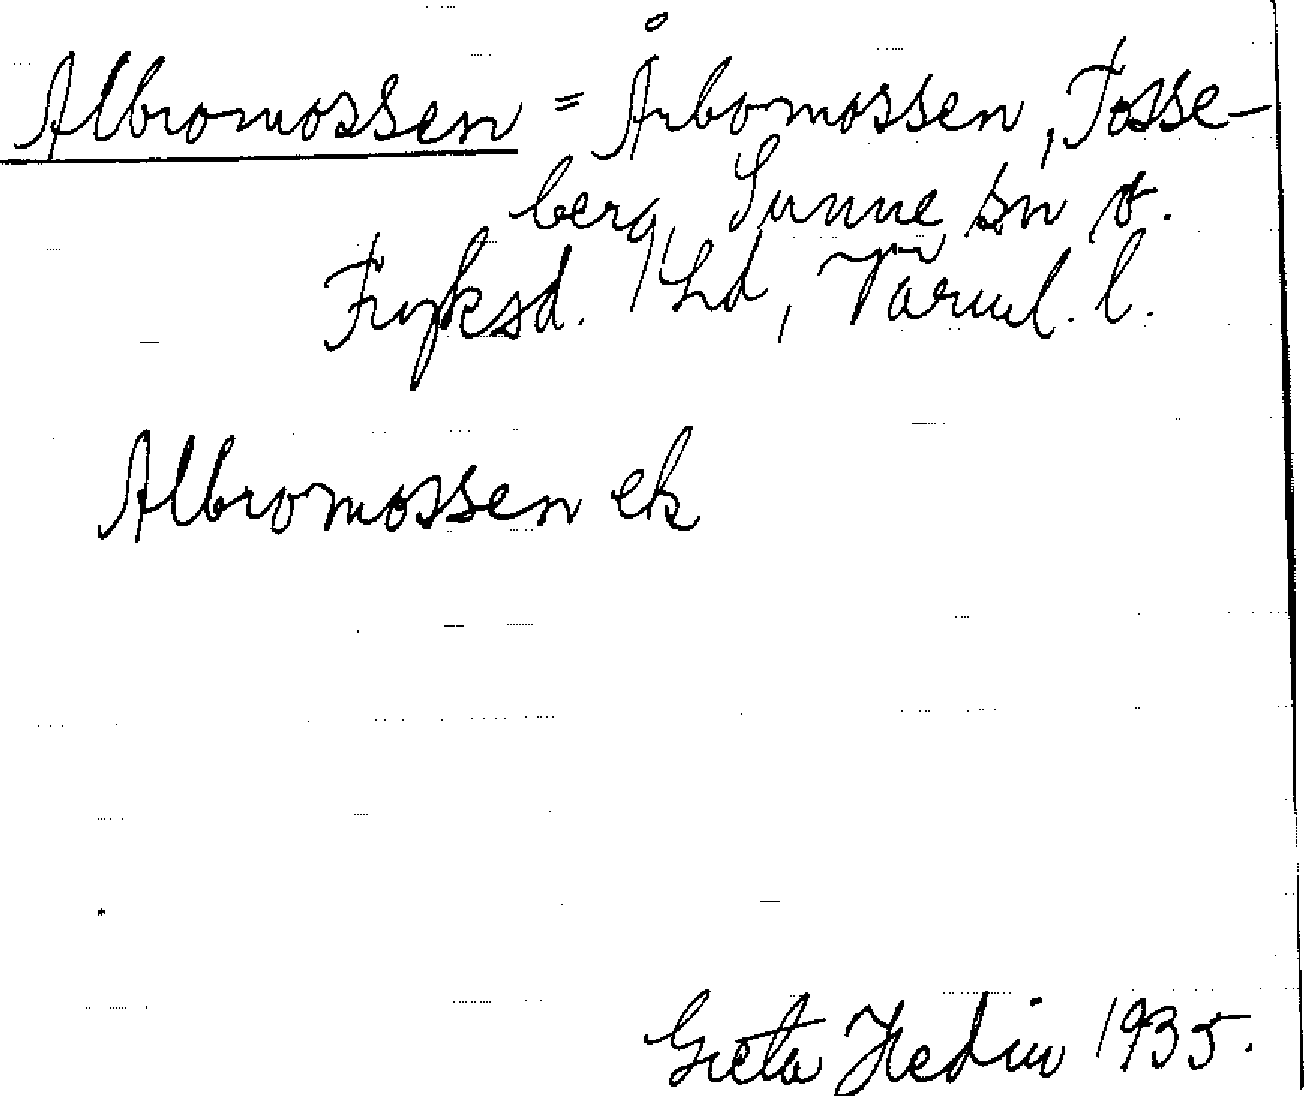 Albromossen = Årbomossen, Fosse-
berg, Sunne sn
Fryksd. hd, Värml. l.
Albromossen ek
Greta Hedin 1935.